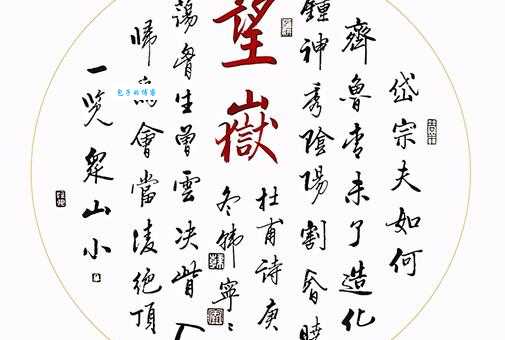 岱宗夫如何
齊魯青未了造化
鍾神秀陰陽割昏曉
望嶽
杜甫詩庚
冬韩寧
蕩胸生曾雲決眥入
帰鳥會當凌絕頂
一览衆山小
包子的博客